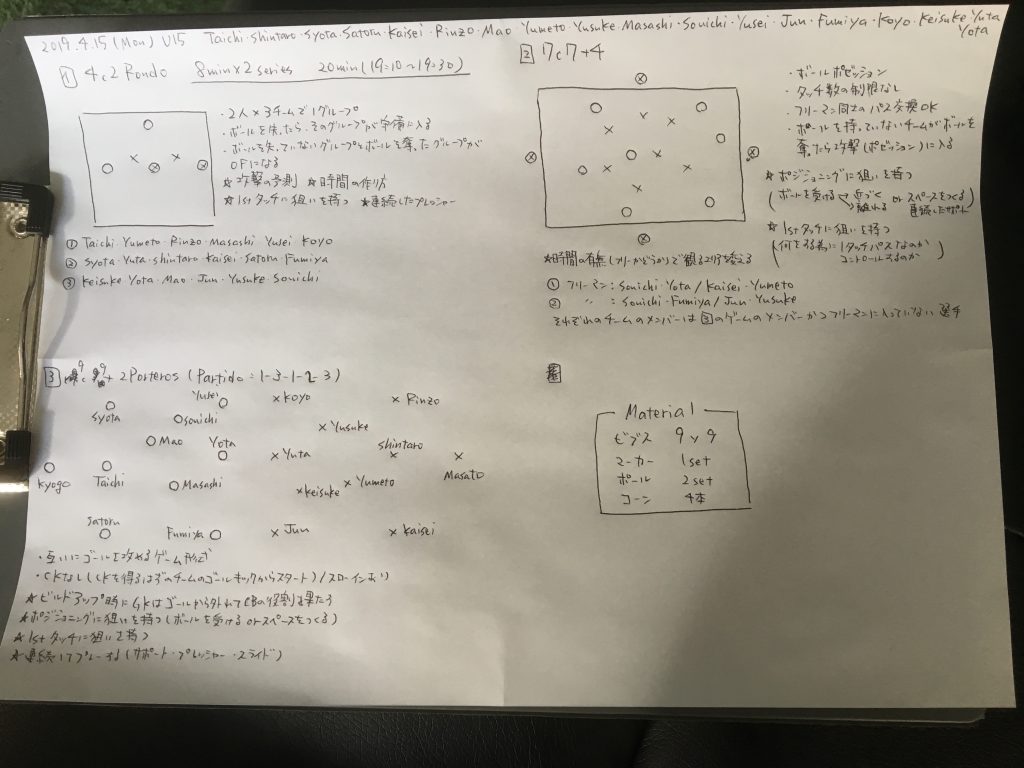 2019.4.15(Mon) U15 Taichi・Shintaro・Syota・Satoru・Kaisei・Rinzo・Mao Yumeto・Yusuke・Masashi・Souichi・Yusei・Jun・Fumiya・Koyo・Keisuke Yuta
Yota
1 4c2 Rondo 8min×2series 20min(19:10~19:30)
・2人×3チームで1グループ
・ボールを失ったら、そのグループが守備に入る
・ボールを失っていないグループとボールを奪ったグループが
OFになる
★攻撃の予測 ★時間の作り方
★1stタッチに狙いを持つ ★連続したプレッシャー
① Taichi・Yumeto・Rinzo・Masashi・Yusei・Koyo
② Syota・Yuta・Shintaro・Kaisei・Satoru・Fumiya
③ Keisuke・Yota・Mao・Jun・Yusuke・Souichi
2 7c7+4
・ボールポゼッション
・タッチ数の制限なし
・フリーマン同士のパス交換OK
・ボールを持っていないチームがボールを
奪ったら攻撃(ポゼッション)に入る
★ポジショニングに狙いを持つ
(ボールを受ける 近づく 離れる or スペースをつくる)
連続したサポート
★1stタッチに狙いを持つ
(何をする為に1タッチパスなのか
コントロールするのか)
★時間の有無(フリーかどうか)で観る
① フリーマン:Souichi・Yota/Kaisei・Yumeto
② 〃 :Souichi・Fumiya/Jun・Yusuke
それぞれのチームのメンバーは3のゲームのメンバーかつフリーマンに入っていない選手
3 9c9+2Porteros(Partido:1-3-1-2-3)
Yusei Koyo Rinzo
Syota Souichi Yusuke
Mao Yota Yuta Shintaro
Masato
Kyogo Taichi Masashi Keisuke Yumeto
Satoru Fumiya Jun Kaisei
・互いにゴールを攻めるゲーム形式
・CKなし(CKを得るはずのチームのゴールキックからスタート)/スローインあり
★ビルドアップ時にGKはゴールから外れてCBの役割を果たす
★ポジショニングに狙いを持つ(ボールを受ける or スペースをつくる)
★1stタッチに狙いを持つ
★連続してプレーする(サポート・プレッシャー・スライド)
Material
ビブス 9×9
マーカー 1set
ボール 2set
コーン 4本